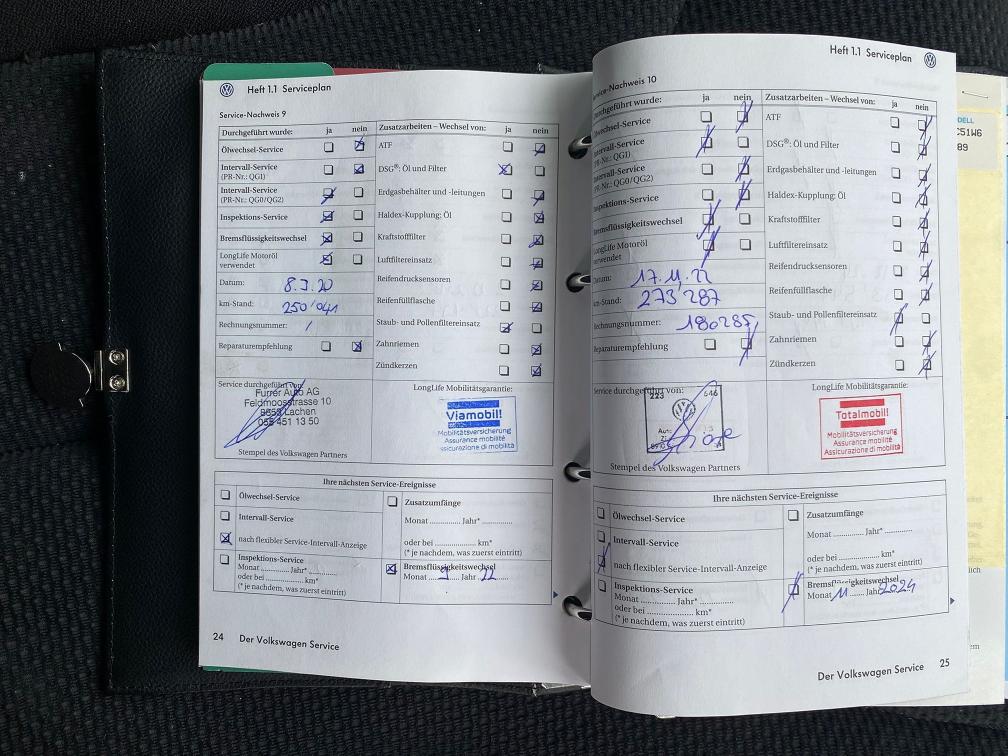 Heft 1.1 Serviceplan
Service-Nachweis 9
Durchgeführt wurde: ja nein
Ölwechsel-Service
Intervall-Service
(PR-Nr.: QG1)
Intervall-Service
(PR-Nr.: QG0/QG2)
Inspektions-Service
Bremsflüssigkeitswechsel
LongLife Motoröl
verwendet
Datum: 8.3.20
km-Stand: 250'041
Rechnungsnummer: /
Reparaturempfehlung
Zusatzarbeiten – Wechsel von: ja nein
ATF
DSG®: Öl und Filter
Erdgasbehälter und -leitungen
Haldex-Kupplung: Öl
Kraftstofffilter
Luftfiltereinsatz
Reifendrucksensoren
Reifenfüllflasche
Staub- und Pollenfiltereinsatz
Zahnriemen
Zündkerzen
Service durchgeführt von:
Furrer Auto AG
Feldmoosstrasse 10
8853 Lachen
055 451 13 50
Stempel des Volkswagen Partners
LongLife Mobilitätsgarantie:
Viamobil!
Mobilitätsversicherung
Assurance mobilité
Assicurazione di mobilità
Ihre nächsten Service-Ereignisse
Ölwechsel-Service
Intervall-Service
nach flexibler Service-Intervall-Anzeige
Inspektions-Service
Monat ............ Jahr* ............
oder bei ............ km*
(* je nachdem, was zuerst eintritt)
Zusatzumfänge
Monat ............ Jahr* ............
oder bei ............ km*
(* je nachdem, was zuerst eintritt)
Bremsflüssigkeitswechsel
Monat 3 Jahr 22
24 Der Volkswagen Service
Heft 1.1 Serviceplan
Service-Nachweis 10
Durchgeführt wurde: ja nein
Ölwechsel-Service
Intervall-Service
(PR-Nr.: QG1)
Intervall-Service
(PR-Nr.: QG0/QG2)
Inspektions-Service
Bremsflüssigkeitswechsel
LongLife Motoröl
verwendet
Datum: 17.11.22
km-Stand: 273'287
Rechnungsnummer: 180285
Reparaturempfehlung
Zusatzarbeiten – Wechsel von: ja nein
ATF
DSG®: Öl und Filter
Erdgasbehälter und -leitungen
Haldex-Kupplung: Öl
Kraftstofffilter
Luftfiltereinsatz
Reifendrucksensoren
Reifenfüllflasche
Staub- und Pollenfiltereinsatz
Zahnriemen
Zündkerzen
Service durchgeführt von:
223 646
Stempel des Volkswagen Partners
LongLife Mobilitätsgarantie:
Totalmobil!
Mobilitätsversicherung
Assurance mobilité
Assicurazione di mobilità
Ihre nächsten Service-Ereignisse
Ölwechsel-Service
Intervall-Service
nach flexibler Service-Intervall-Anzeige
Inspektions-Service
Monat ............ Jahr* ............
oder bei ............ km*
(* je nachdem, was zuerst eintritt)
Zusatzumfänge
Monat ............ Jahr* ............
oder bei ............ km*
(* je nachdem, was zuerst eintritt)
Bremsflüssigkeitswechsel
Monat 11 Jahr 2024
Der Volkswagen Service 25
C51W6
89